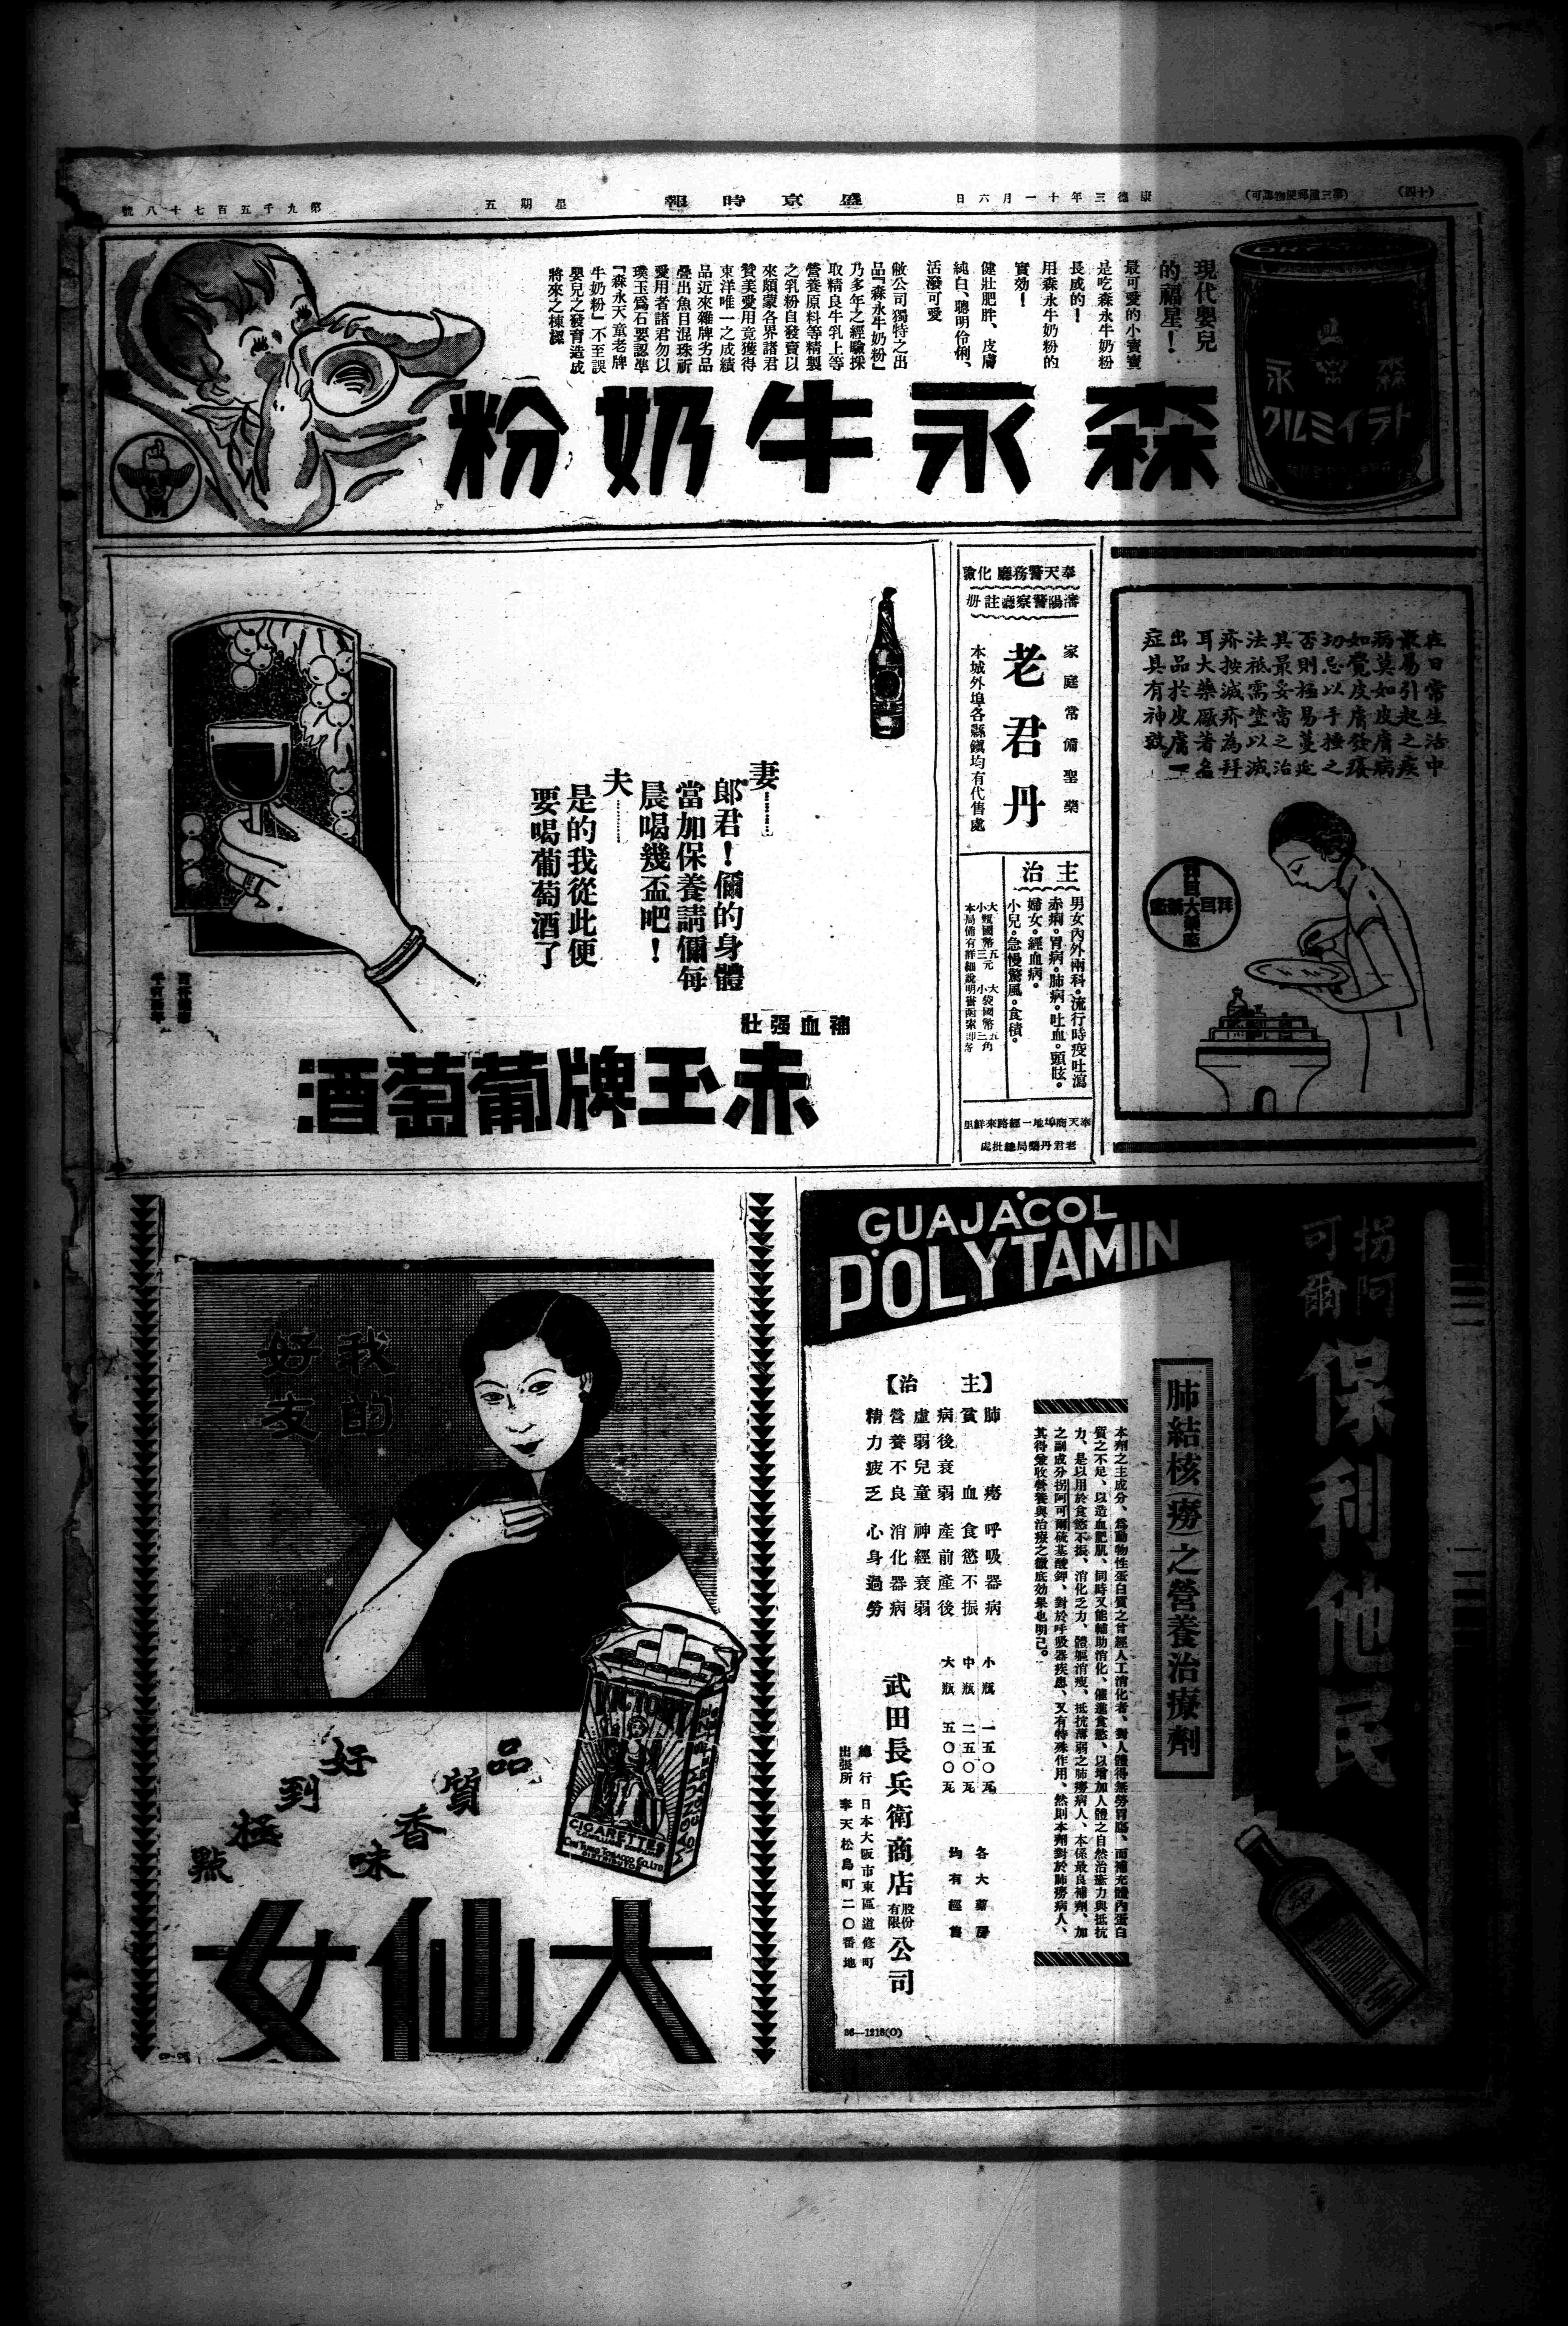 (十四)
(第三種郵便物認可)
康德三年十一月六日
盛京時報
星期五
第九千五百七十八號
現代嬰兒
的福星!
最可愛的小寶寶
是吃森永牛奶粉
長成的!
用森永牛奶粉的
實効!
健壯肥胖、皮膚
純白、聰明伶俐、
活潑可愛
敝公司獨特之出
品『森永牛奶粉』
乃多年之經驗採
取精良牛乳上等
營養原料等精製
之乳粉自發賣以
來頗蒙各界諸君
贊美愛用竟獲得
東洋唯一之成績
品近來雜牌劣品
疊出魚目混珠祈
愛用者諸君勿以
璞玉爲石要認準
『森永天童老牌
牛奶粉』不至誤
嬰兒之發育造成
將來之棟樑
森永牛奶粉
森永
ドライミルク
在日常生活中
最易引起之疾
病莫如皮膚病
如覺皮膚發癢
切忌以手搔之
否則極易蔓延
其最妥當之治
法祗需塗以滅
疥按滅疥為拜
耳大藥廠著名
出品於皮膚
症具有神效
拜耳大藥廠
奉天警務廳化驗
瀋陽警察廳註册
家庭常備聖藥
老君丹
本城外埠各縣鎭均有代售處
主治
男女內外兩科。流行時疫吐瀉
赤痢。胃病。肺病。吐血。頭眩。
婦女。經血病。
小兒。急慢驚風。食積。
大瓶國幣五元 大袋國幣五角
小瓶國幣三元 小袋國幣三角
奉天商埠地一經路來鮮里
老君丹藥局總批處
妻………
郎君!儞的身體
當加保養請儞每
晨喝幾盃吧!
夫………
是的我從此便
要喝葡萄酒了
補血强壯
赤玉牌葡萄酒
GUAJACOL
POLYTAMIN
拐阿
可爾
保利他民
肺結核(癆)之營養治療劑
本劑之主成分、爲動物性蛋白質之曾經人工消化者、對人體得無勞胃腸、而補充體內蛋白
質之不足、以造血肥肌、同時又能輔助消化、催進食慾、以增加人體之自然治癒力與抵抗
力、是以用於食慾不振、消化乏力、體軀消瘦、抵抗薄弱之肺癆病人、本係最良補劑、加
之副成分拐阿可爾硫基酸鉀、對於呼吸器疾患、又有特殊作用、然則本劑對於肺癆病人、
其得兼收營養與治療之徹底効果也明已。
【主治】
肺癆 呼吸器病
貧血 食慾不振
病後衰弱 產前產後
虛弱兒童 神經衰弱
營養不良 消化器病
精力疲乏 心身過勞
小瓶 一五〇瓦
中瓶 二五〇瓦
大瓶 五〇〇瓦
各大藥房
均有經售
武田長兵衛商店股份有限公司
總行 日本大阪市東區道修町
出張所 奉天松島町二〇番地
36—1218(O)
我的
好友
VICTORY
CIGARETTES
CHI TUNG TOBACCO CO. LTD.
DISTRIBUTORS
品質香味
好到極點
大仙女